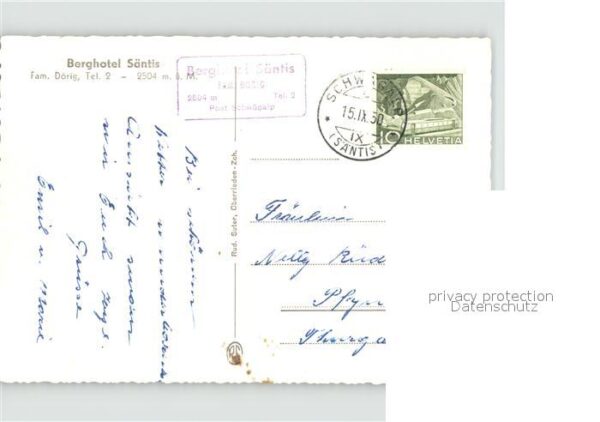 Berghotel Säntis
Fam. Dörig, Tel. 2 – 2504 m. ü. M.
Berghotel Säntis
Fam. DÖRIG
2504 m Tel. 2
Post Schwägalp
SCHWÄGALP
15.IX.50
IX
(SÄNTIS)
10 HELVETIA
Bei schönem
Wetter u. wunderbarer
Aussicht senden
wir Euch
Grüsse
Emil u. Marie
Rud. Suter, Oberrieden-Zch.
Fräulein
Netty
Pfyn
Thurga
privacy protection
Datenschutz